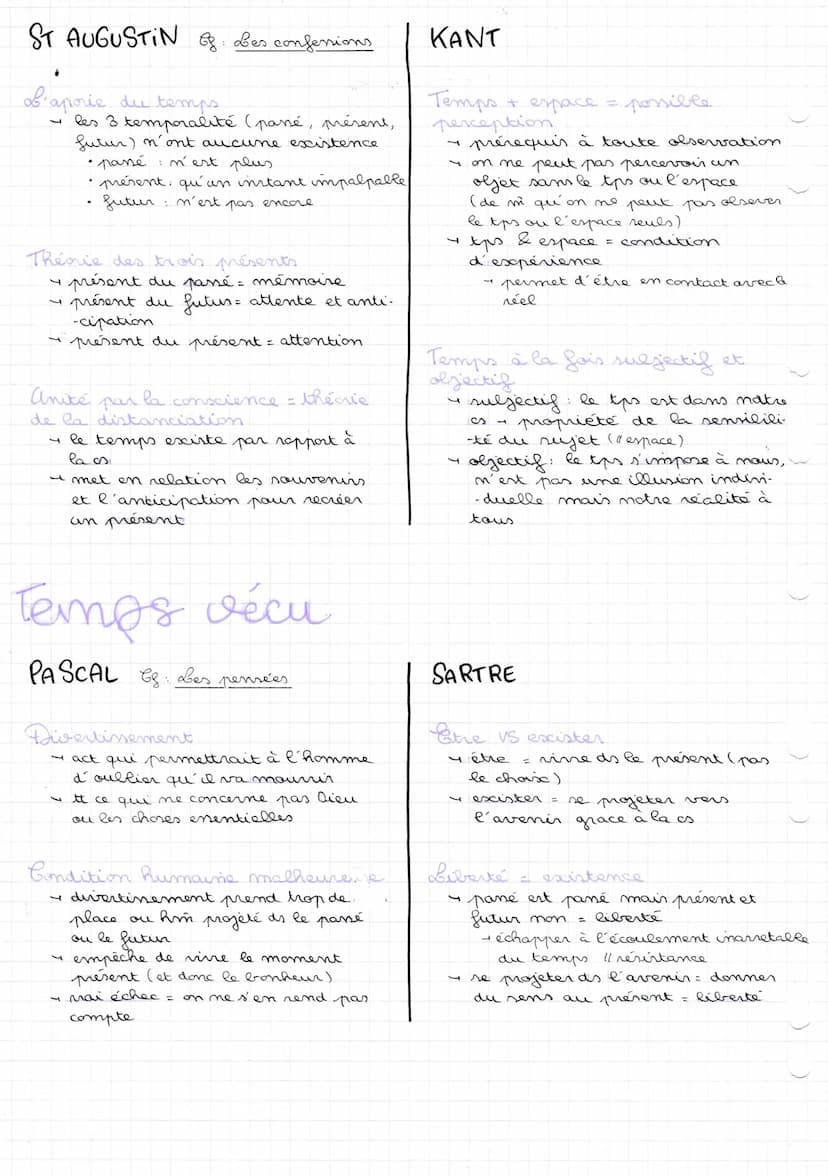 ST AUGUSTIN Cf : Les confessions
L'aporie du temps
→ les 3 temporalité (passé, présent,
futur) n'ont aucune existence
• passé : n'est plus
• présent : qu'un instant impalpable
• futur : n'est pas encore
Théorie des trois présents
→ présent du passé = mémoire
→ présent du futur = attente et anti-
-cipation
→ présent du présent = attention
Unité par la conscience = théorie
de la distanciation
→ le temps existe par rapport à
la cs
→ met en relation les souvenirs
et l'anticipation pour recréer
un présent
KANT
Temps + espace = possible
perception
→ prérequis à toute observation
→ on ne peut pas percevoir un
objet sans le tps ou l'espace
(de m̂ qu'on ne peut pas observer
le tps ou l'espace seuls)
→ tps & espace = condition
d'expérience
→ permet d'être en contact avec le
réel
Temps à la fois subjectif et
objectif
→ subjectif : le tps est dans notre
cs → propriété de la sensibili-
-té du sujet (" espace)
→ objectif : le tps s'impose à nous,
n'est pas une illusion indivi-
-duelle mais notre réalité à
tous
Temps vécu
PASCAL Cf : Les pensées
Divertissement
→ act qui permettrait à l'homme
d'oublier qu'il va mourrir
→ tt ce qui ne concerne pas Dieu
ou les choses essentielles
Condition humaine malheureuse
→ divertissement prend trop de
place ou hm projeté ds le passé
ou le futur
→ empêche de vivre le moment
présent (et donc le bonheur)
→ vrai échec = on ne s'en rend pas
compte
SARTRE
Etre VS exister
→ être = vivre ds le présent (pas
le choix)
→ exister = se projeter vers
l'avenir grace à la cs
Liberté = existence
→ passé est passé mais présent et
futur non = liberté
→ échapper à l'écoulement inarretable
du temps // résistance
→ se projeter ds l'avenir = donner
du sens au présent = liberté